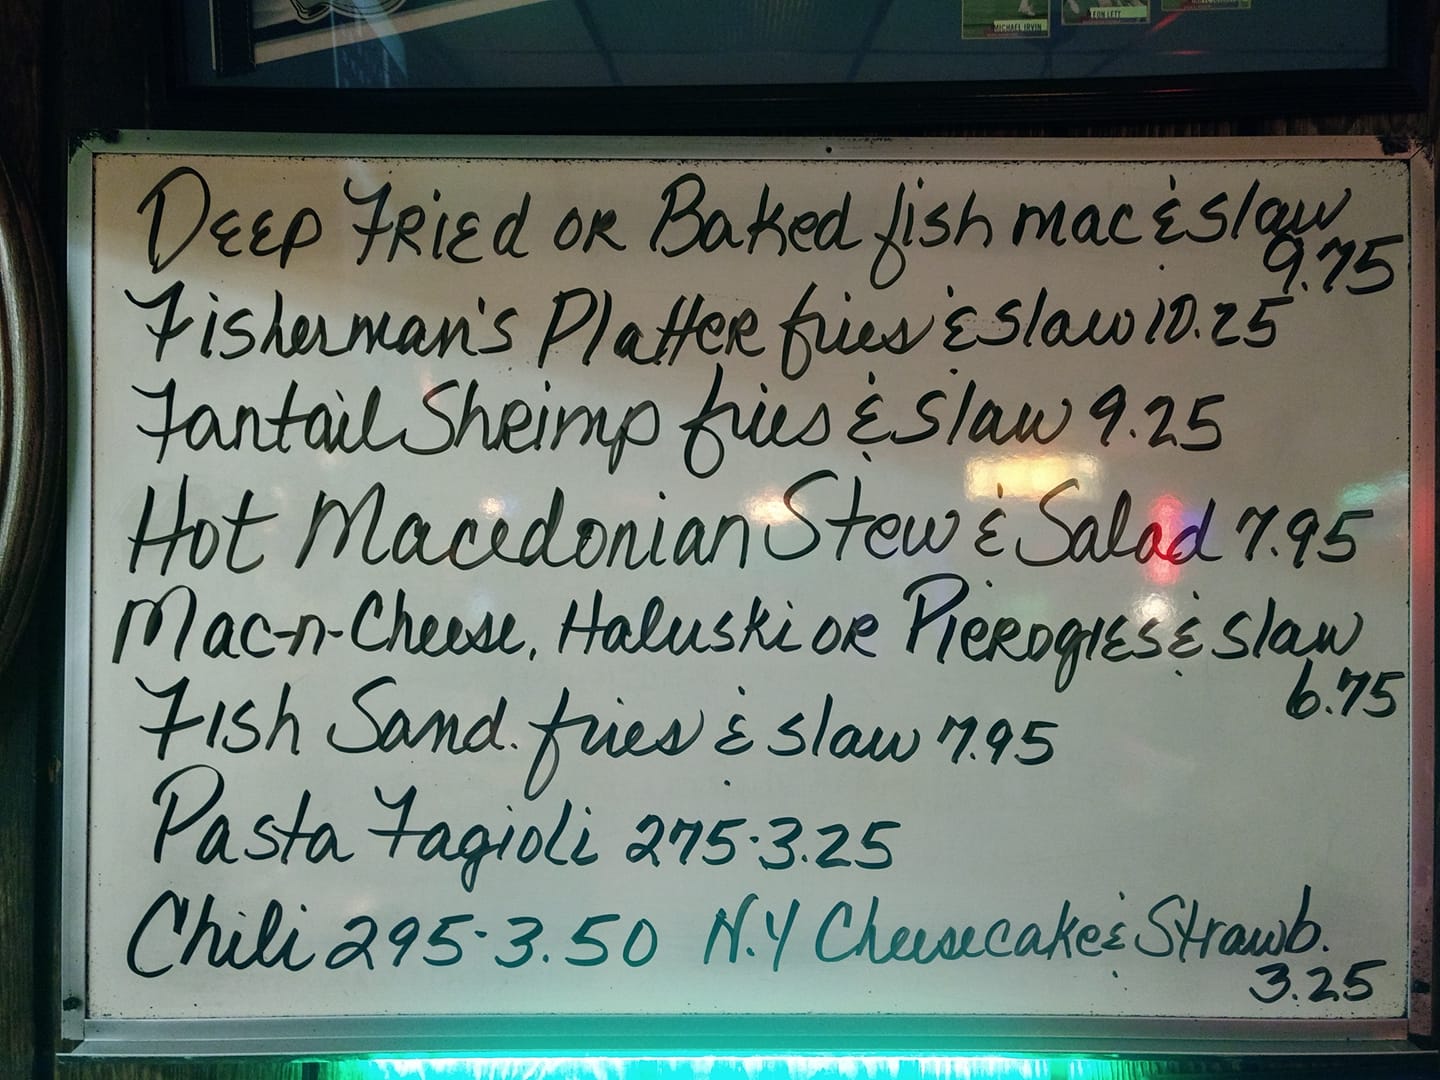 MICHAEL IRVIN
LEON LETT
Deep Fried or Baked fish mac & slaw
9.75
Fisherman's Platter fries & slaw 10.25
Fantail Shrimp fries & slaw 9.25
Hot Macedonian Stew & Salad 7.95
Mac-n-Cheese, Haluski or Pierogies & slaw
6.75
Fish Sand. fries & slaw 7.95
Pasta Fagioli 275-3.25
Chili 295-3.50 N.Y Cheesecake & Strawb.
3.25